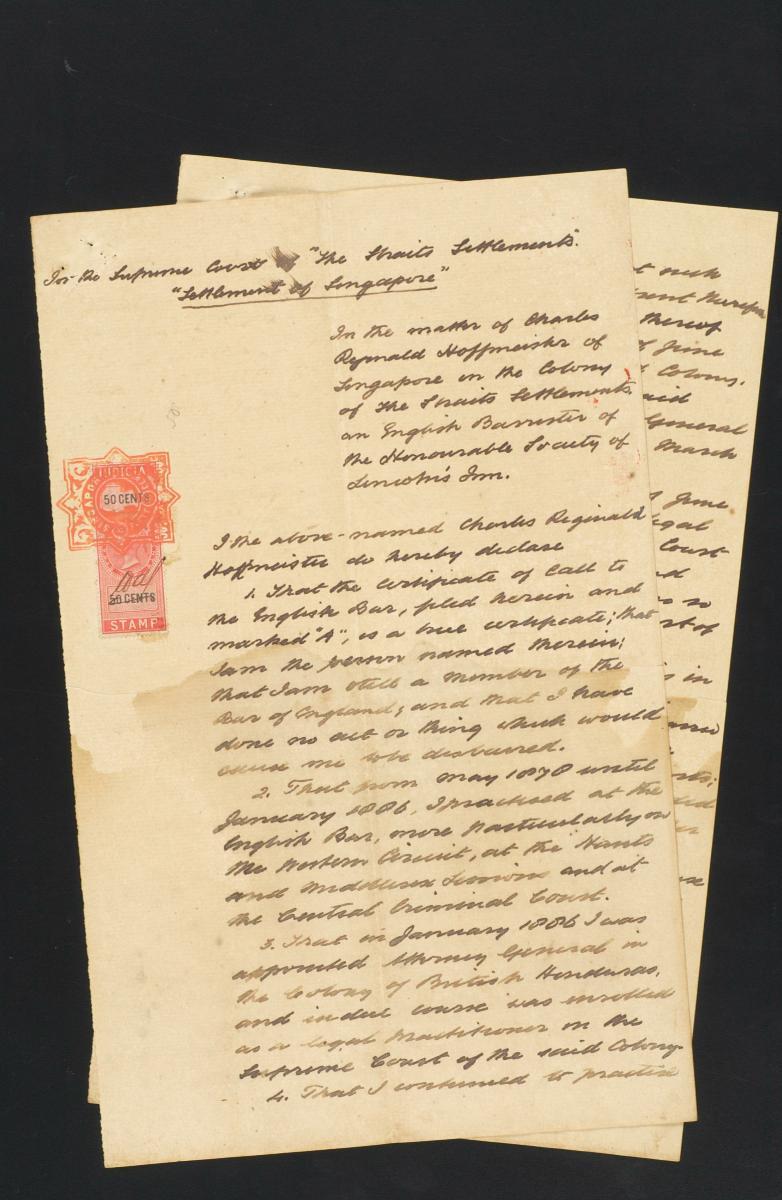 In the Supreme Court of "The Straits Settlements".
"Settlement of Singapore"
In the matter of Charles
Reginald Hoffmeister of
Singapore in the Colony
of The Straits Settlements,
an English Barrister of
the Honourable Society of
Lincoln's Inn.
JUDICIAL
50 CENTS
50 CENTS
STAMP
I the above-named Charles Reginald
Hoffmeister do hereby declare
1. That the Certificate of Call to
the English Bar, filed herein and
marked "A", is a true certificate; that
I am the person named therein;
that I am still a member of the
Bar of England; and that I have
done no act or thing which would
cause me to be disbarred.
2. That from May 1878 until
January 1886, I practised at the
English Bar, more particularly on
the Western Circuit, at the Hants
and Middlesex Sessions and at
the Central Criminal Court.
3. That in January 1886 I was
appointed Attorney General in
the Colony of British Honduras,
and in due course was enrolled
as a legal Practitioner in the
Supreme Court of the said Colony.
4. That I continued to practise
such
thereof
June
Colony.
General
March
June
Court
so
in